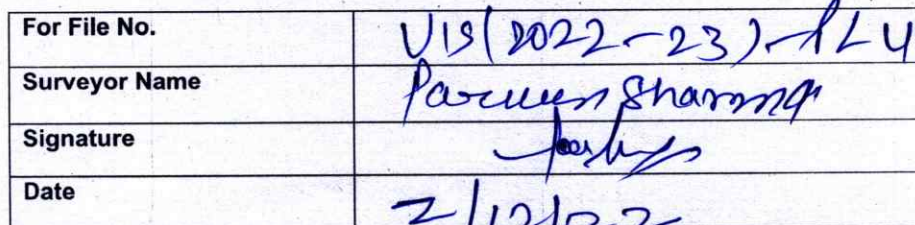 For File No. VIS(2022-23)-PL4
Surveyor Name Parveen Sharma
Signature
Date 7/12/22